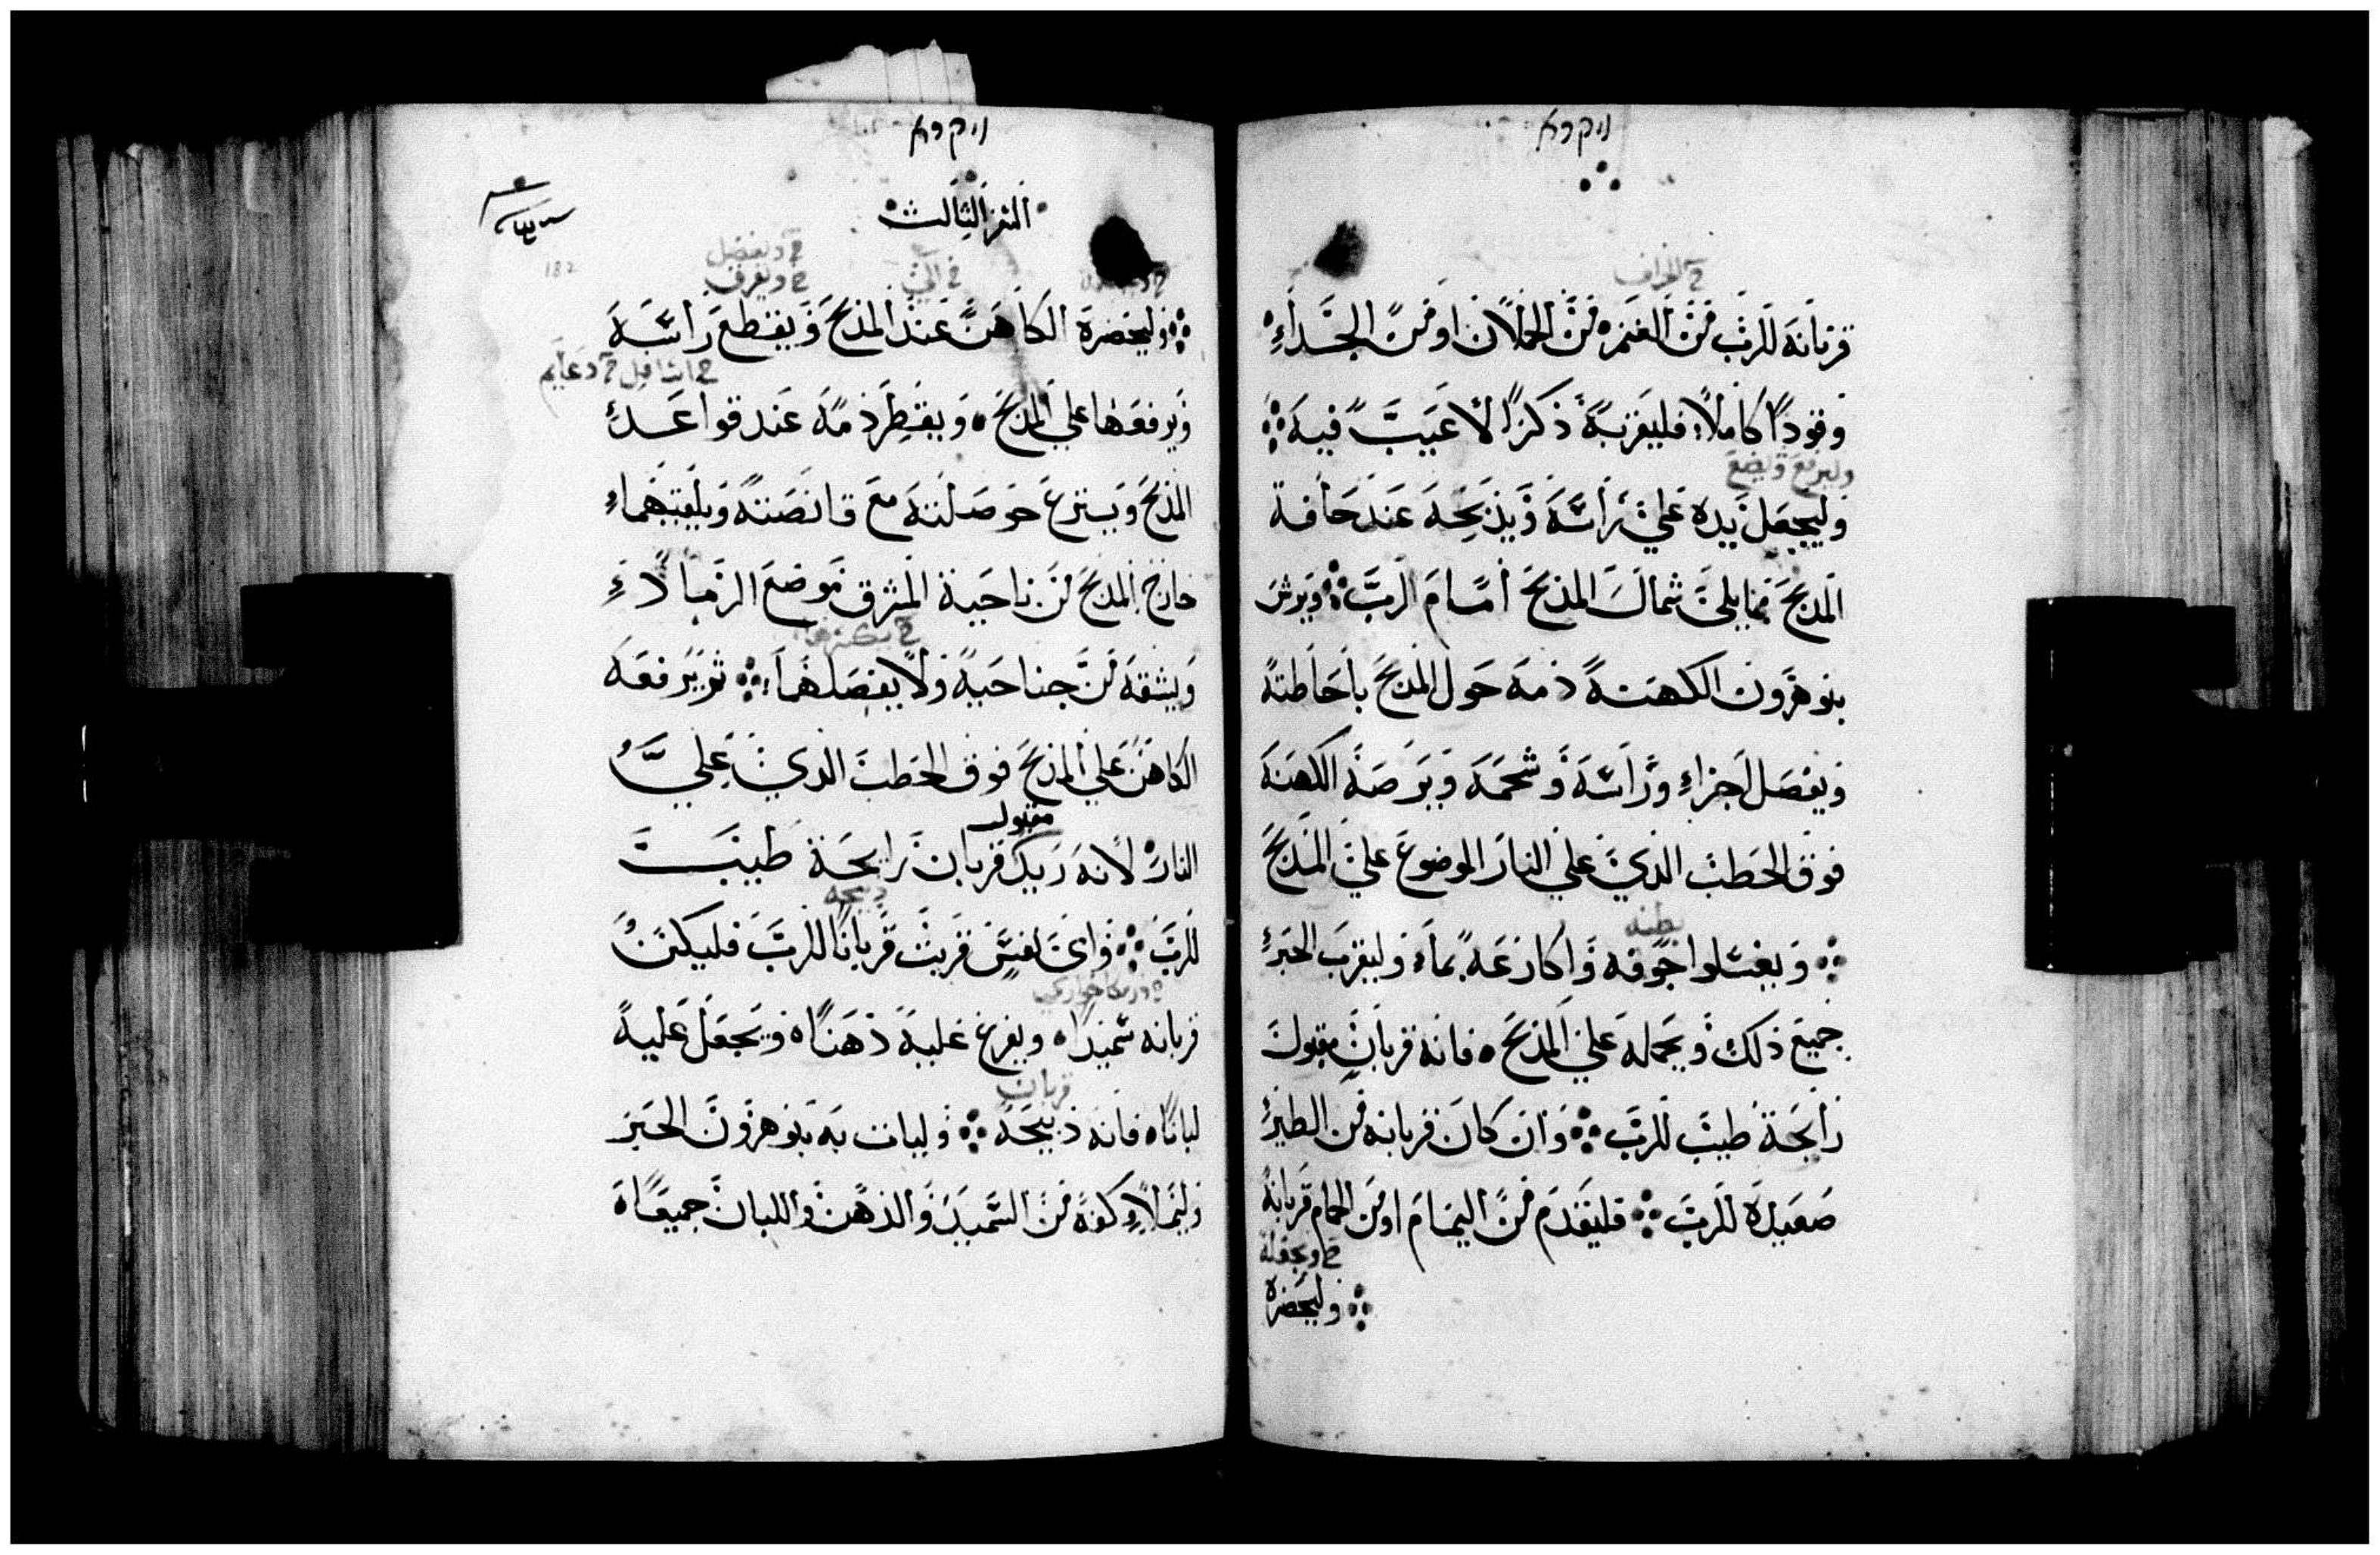 ויקרא
خ الخراف
قربانه للرب من الغنم من الحملان او من الجداء
وقودا كاملا فليقربه ذكرا لا عيب فيه
وليرفع ويضع
وليجعل يده علي راسه ويذبحه عند حافة
المذبح مما يلي شمال المذبح امام الرب ويرش
بنو هرون الكهنة دمه حول المذبح باحاطته
ويفصل اجزاء وراسه وشحمه ويرصه الكهنه
فوق الحطب الذي علي النار الموضوع علي المذبح
بطنه
ويغسلوا جوفه واكارعه بماء وليقرب الحبر
جميع ذلك ويحمله علي المذبح فانه قربان مقبول
رايحة طيب للرب وان كان قربانه من الطير
صعيدة للرب فليقدم من اليمام او من الحمام قربانه
وليحضره
ויקרא
السفر الثالث
182
خ ويفصل
خ ويفرق
وليحضره الكاهن عند المذبح ويقطع راسه
ويرفعها علي المذبح ويقطر دمه عند قواعد
المذبح وينزع حوصلته مع قانصته ويلقيهما
خارج المذبح من ناحية المشرق موضع الرماد
ويشقه من جناحيه ولا يفصلهما ثم يرفعه
الكاهن علي المذبح فوق الحطب الذي علي
مقبول
النار لانه قربان رايحة طيب
ذبيحه
للرب واي نفس قربت قربانا للرب فليكن
قربانه سميدا ويفرغ عليه دهنا ويجعل عليه
قربان
لبانا فانه ذبيحه وليات به بنو هرون الحبر
وليملا كفه من السميد والدهن واللبان جميعا